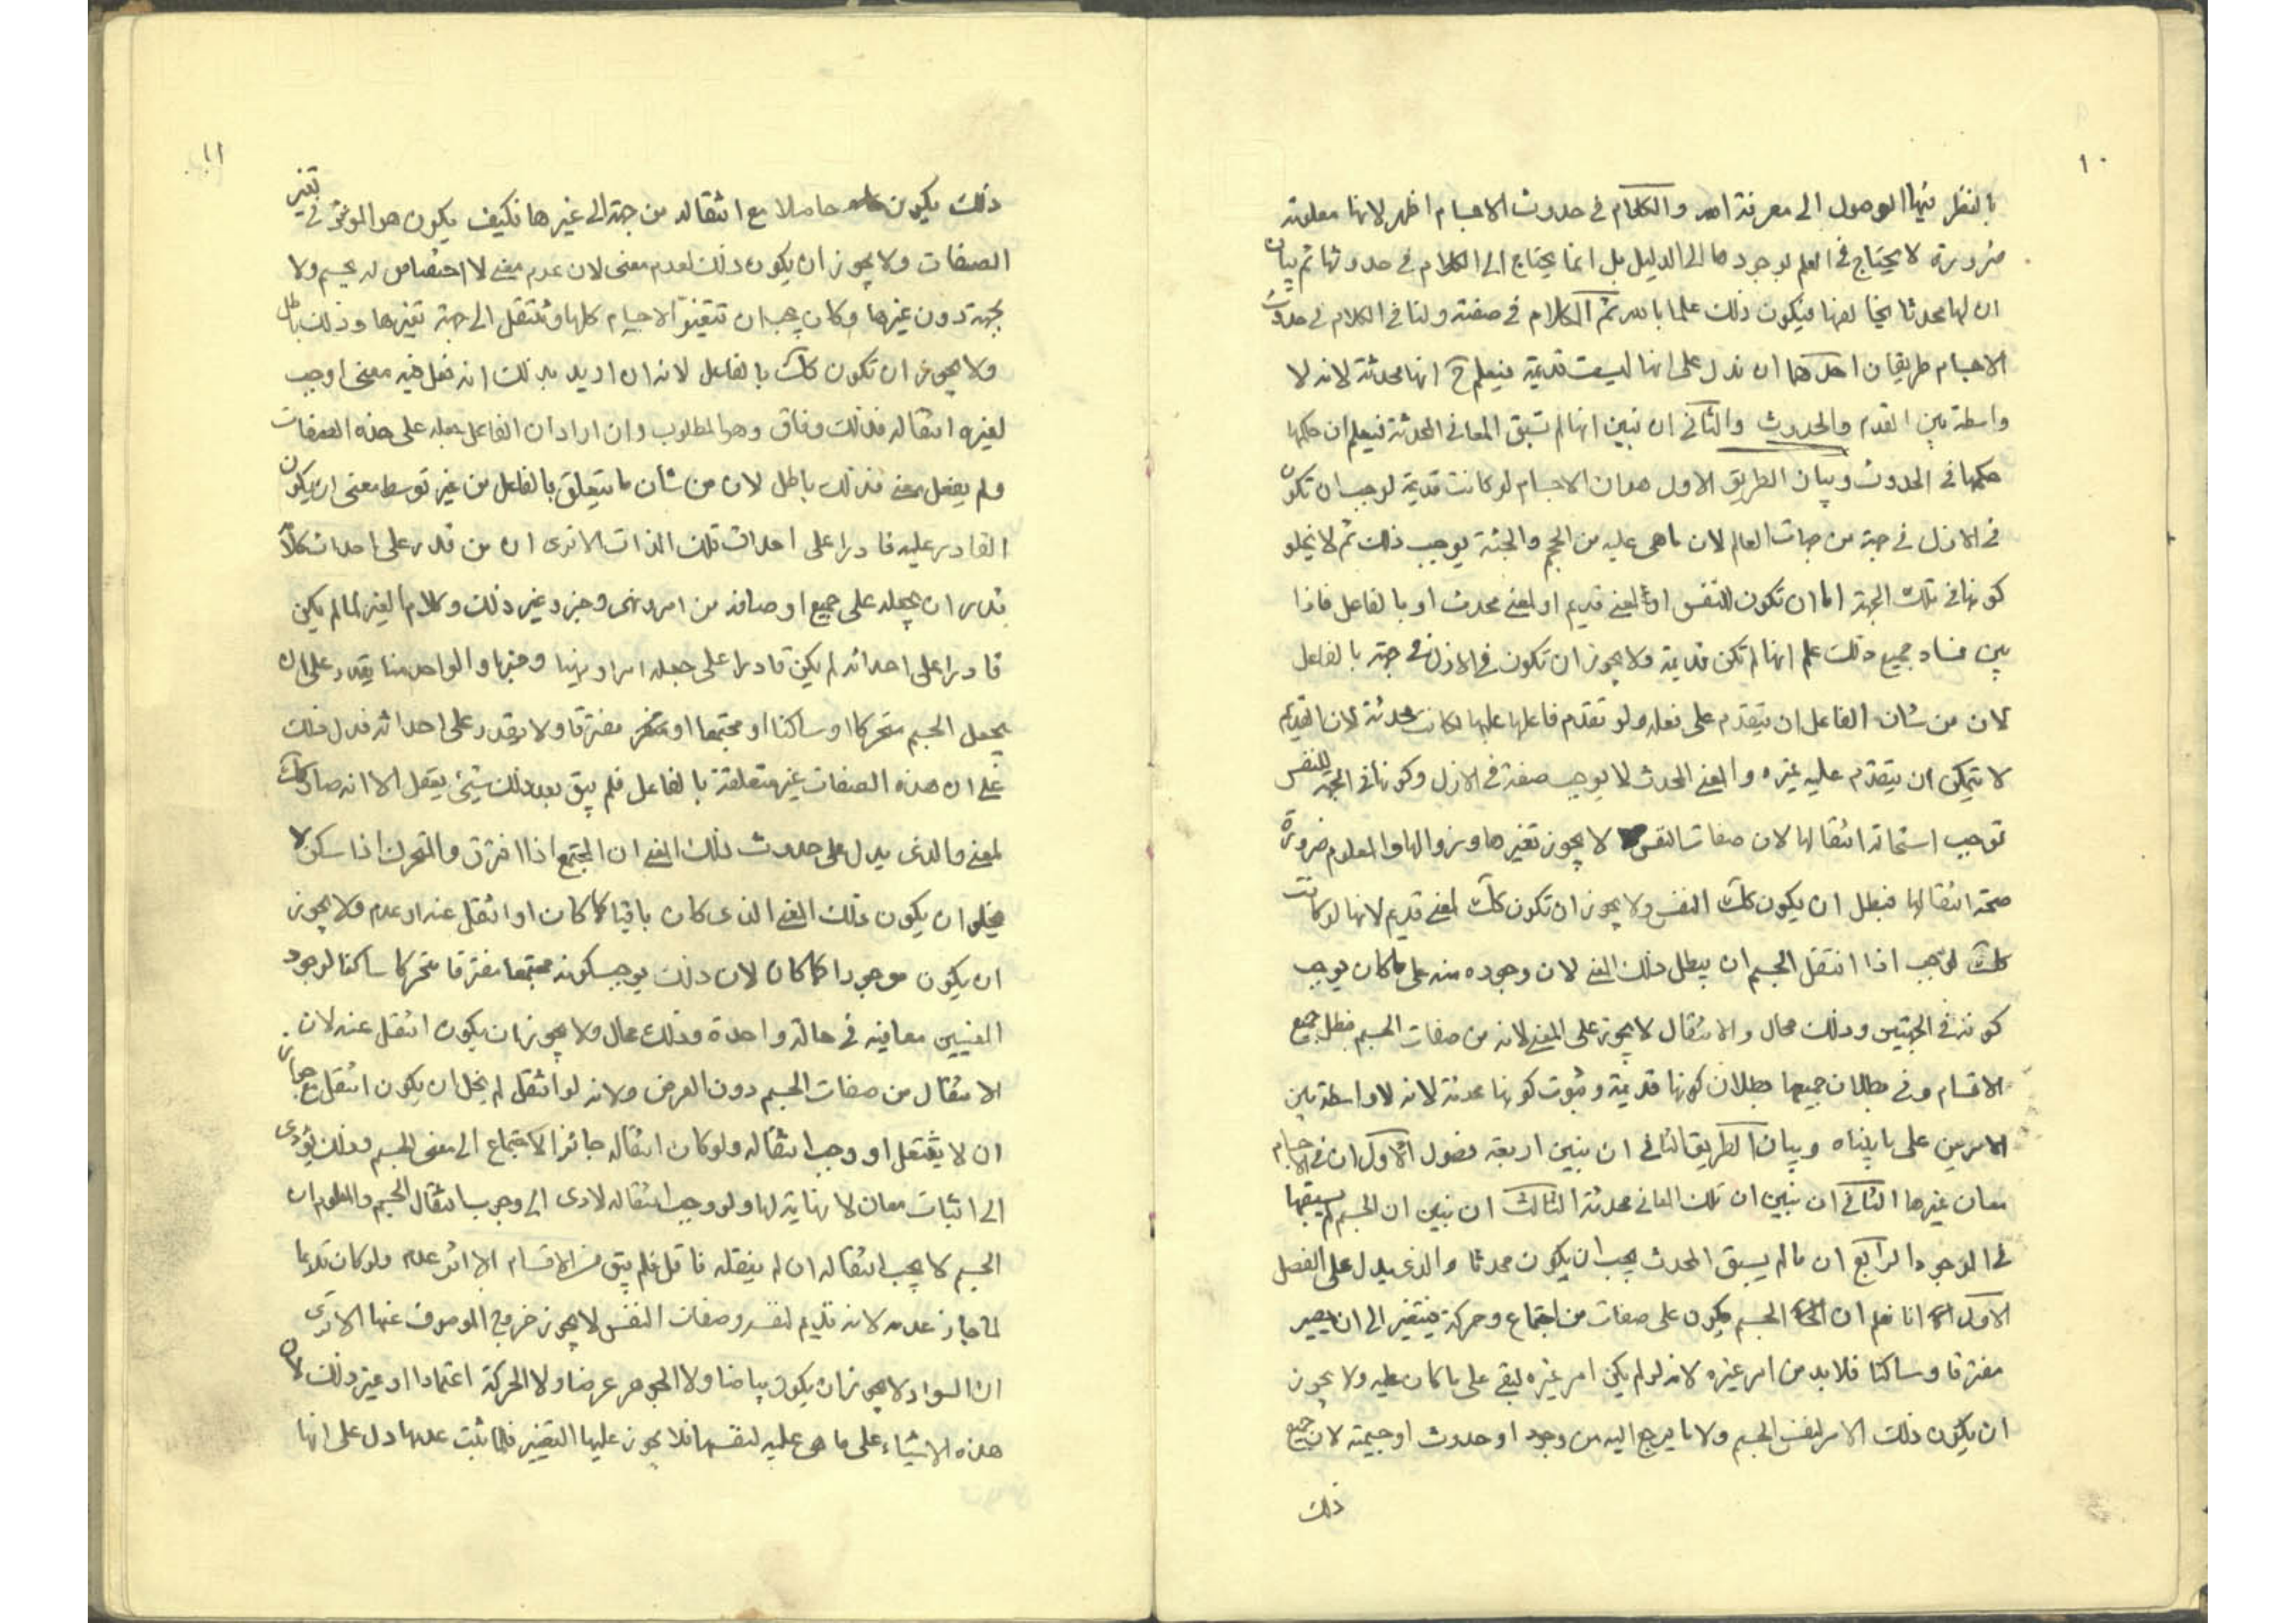 ١٠
بالنظر فيها الوصول الى معرفة الله والكلام في حدوث الاجسام اظهر لانها معلومة
ضرورة لا يحتاج في العلم بوجودها الى الدليل بل انما يحتاج الى الكلام في حدوثها ثم بيان
ان لها محدثا يخالفها فيكون ذلك علما بالله ثم الكلام في صفته ولنا في الكلام في حدوث
الاجسام طريقان احدهما ان ندل على انها ليست قديمة فيعلم ح انها محدثة لانه لا
واسطة بين القدم والحدوث والثاني ان نبين انها لم تسبق المعاني المحدثة فيعلم ان حكمها
حكمها في الحدوث وبيان الطريق الاول هو ان الاجسام لو كانت قديمة لوجب ان تكون
في الازل في جهة من جهات العالم لان ما هي عليه من الحجم والجثة يوجب ذلك ثم لا يخلو
كونها في تلك الجهة اما ان تكون للنفس او لمعنى قديم او لمعنى محدث او بالفاعل فاذا
بين فساد جميع ذلك علم انها لم تكن قديمة ولا يجوز ان تكون في الازل في جهة بالفاعل
لان من شان الفاعل ان يتقدم على فعله ولو تقدم فاعلها عليها لكانت محدثة لان القديم
لا يتمكن ان يتقدم عليه غيره والمعنى المحدث لا يوجب صفة في الازل وكونها في الجهة للنفس
توجب استحالة انتقالها لان صفات النفس لا يجوز تغيرها وزوالها والمعلوم ضرورة
صحة انتقالها فبطل ان يكون كك النفس ولا يجوز ان تكون كك لمعنى قديم لانها لو كانت
كك لوجب اذا انتقل الجسم ان يبطل ذلك المعنى لان وجوده منه على ما كان يوجب
كونه في الجهتين وذلك محال والانتقال لا يجوز على المعنى لانه من صفات الجسم فبطل جميع
الاقسام وفي بطلان جميعها بطلان كونها قديمة وثبوت كونها محدثة لانه لا واسطة بين
الامرين على ما بيناه وبيان الطريق الثاني ان نبين اربعة فصول الاول ان في الاجسام
معان غيرها الثاني ان نبين ان تلك المعاني محدثة الثالث ان نبين ان الجسم لم يسبقها
في الوجود الرابع ان ما لم يسبق المحدث يجب ان يكون محدثا والذي يدل على الفصل
الاول انا نعلم ان الجسم يكون على صفات من اجتماع وحركة فيتغير الى ان يصير
مفترقا وساكنا فلا بد من امر غيره لانه لو لم يكن امر غيره لبقي على ما كان عليه ولا يجوز
ان يكون ذلك الامر لنفس الجسم ولا ما يرجع اليه من وجود او حدوث او جسمية لان جميع
ذلك
١١
ذلك يكون حاصلا مع انتقاله من جهة الى غيرها فكيف يكون هو الموثر في تغير
الصفات ولا يجوز ان يكون ذلك لعدم معنى لان عدم معنى لا اختصاص له بجسم ولا
بجهة دون غيرها وكان يجب ان تتغير الاجسام كلها وتنتقل الى جهة تغيرها وذلك باطل
ولا يجوز ان تكون كك بالفاعل لانه ان اريد بذلك انه فعل فيه معنى اوجب
لغيره انتقاله فذلك وفاق وهو المطلوب وان اراد ان الفاعل جعله على هذه الصفات
ولم يفعل معنى فذلك باطل لان من شأن ما يتعلق بالفاعل من غير توسط معنى ان يكون
القادر عليه قادرا على احداث تلك الذات الا ترى ان من قدر على احداث كلام
قدر ان يجعله على جميع اوصافه من امر ونهي وخبر وغير ذلك وكلام الغير لما لم يكن
قادرا على احداثه لم يكن قادرا على جعله امرا ونهيا وخبرا والواحد منا يقدر على ان
يجعل الجسم متحركا او ساكنا او مجتمعا او مفترقا ولا يقدر على احداثه فدل ذلك
على ان هذه الصفات غير متعلقة بالفاعل فلم يبق بعد ذلك شيئ يعقل الا انه صار كك
لمعنى والذي يدل على حدوث ذلك المعنى ان المجتمع اذا افترق والمتحرك اذا سكن لا
يخلو ان يكون ذلك المعنى الذي كان باقيا كما كان او انتقل عنه او عدم ولا يجوز
ان يكون موجودا كما كان لان ذلك يوجب كونه مجتمعا مفترقا متحركا ساكنا لوجود
المعنيين معا فيه في حالة واحدة وذلك محال ولا يجوز ان يكون انتقل عنه لان
الانتقال من صفات الجسم دون العرض ولانه لو انتقل لم يخل ان يكون انتقل مع جواز
ان لا ينتقل او وجب انتقاله ولو كان انتقاله جائزا لاحتاج الى معنى الجسم وذلك يؤدى
الى اثبات معان لا نهاية لها ولو وجب انتقاله لادى الى وجوب انتقال الجسم والمعلوم ان
الجسم لا يجب انتقاله ان لم ينقله ناقل فلم يبق من الاقسام الا انه عدم ولو كان قديما
لما جاز عدمه لانه قديم لنفسه وصفات النفس لا يجوز خروج الموصوف عنها الا ترى
ان السواد لا يجوز ان يكون بياضا ولا الجوهر عرضا ولا الحركة اعتمادا او غير ذلك لان
هذه الاشياء على ما هي عليه لنفسها فلا يجوز عليها التغيير فلما ثبت عدمها دل على انها